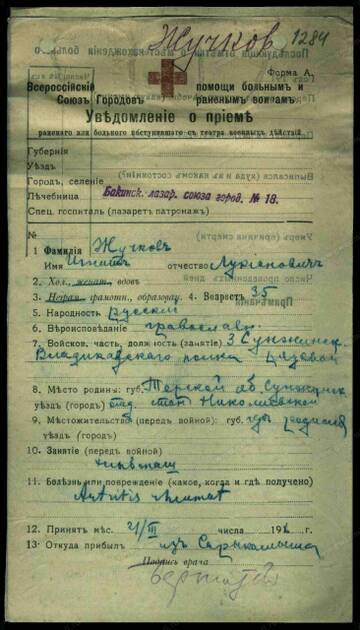 Жучков 1284
Форма А.
Всероссійскій Союзъ Городовъ помощи больнымъ и раненымъ воинамъ.
Увѣдомленіе о пріемѣ
раненаго или больного поступившаго съ театра военныхъ дѣйствій
Губернія
Уѣздъ
Городъ, селеніе
Лѣчебница Бакинск. лазар. союза город. № 18.
Спец. госпиталь (лазаретъ патронажъ)
№
1 Фамилія Жучковъ
Имя Игнатъ отчество Лукьяновичъ
2. Хол., женат., вдовъ
3. Неграм., грамотн., образован. 4. Возрастъ 35
5. Народность русскій
6. Вѣроисповѣданіе православн.
7. Войсков. часть, должность (занятіе) 3 Сунженск.
Владикавказскаго полка рядовой
8. Мѣсто родины: губ. Терской об. Сунженск.
уѣздъ (городъ) отд. стан. Николаевской
9. Мѣстожительство (передъ войной): губ. гдѣ родился
уѣздъ (городъ)
10. Занятіе (передъ войной)
11. Болѣзнь или поврежденіе (какое, когда и гдѣ получено)
Artritis rheumat
12. Принятъ мѣс. III числа 191
13. Откуда прибылъ изъ Сарыкамыша
Подпись врача